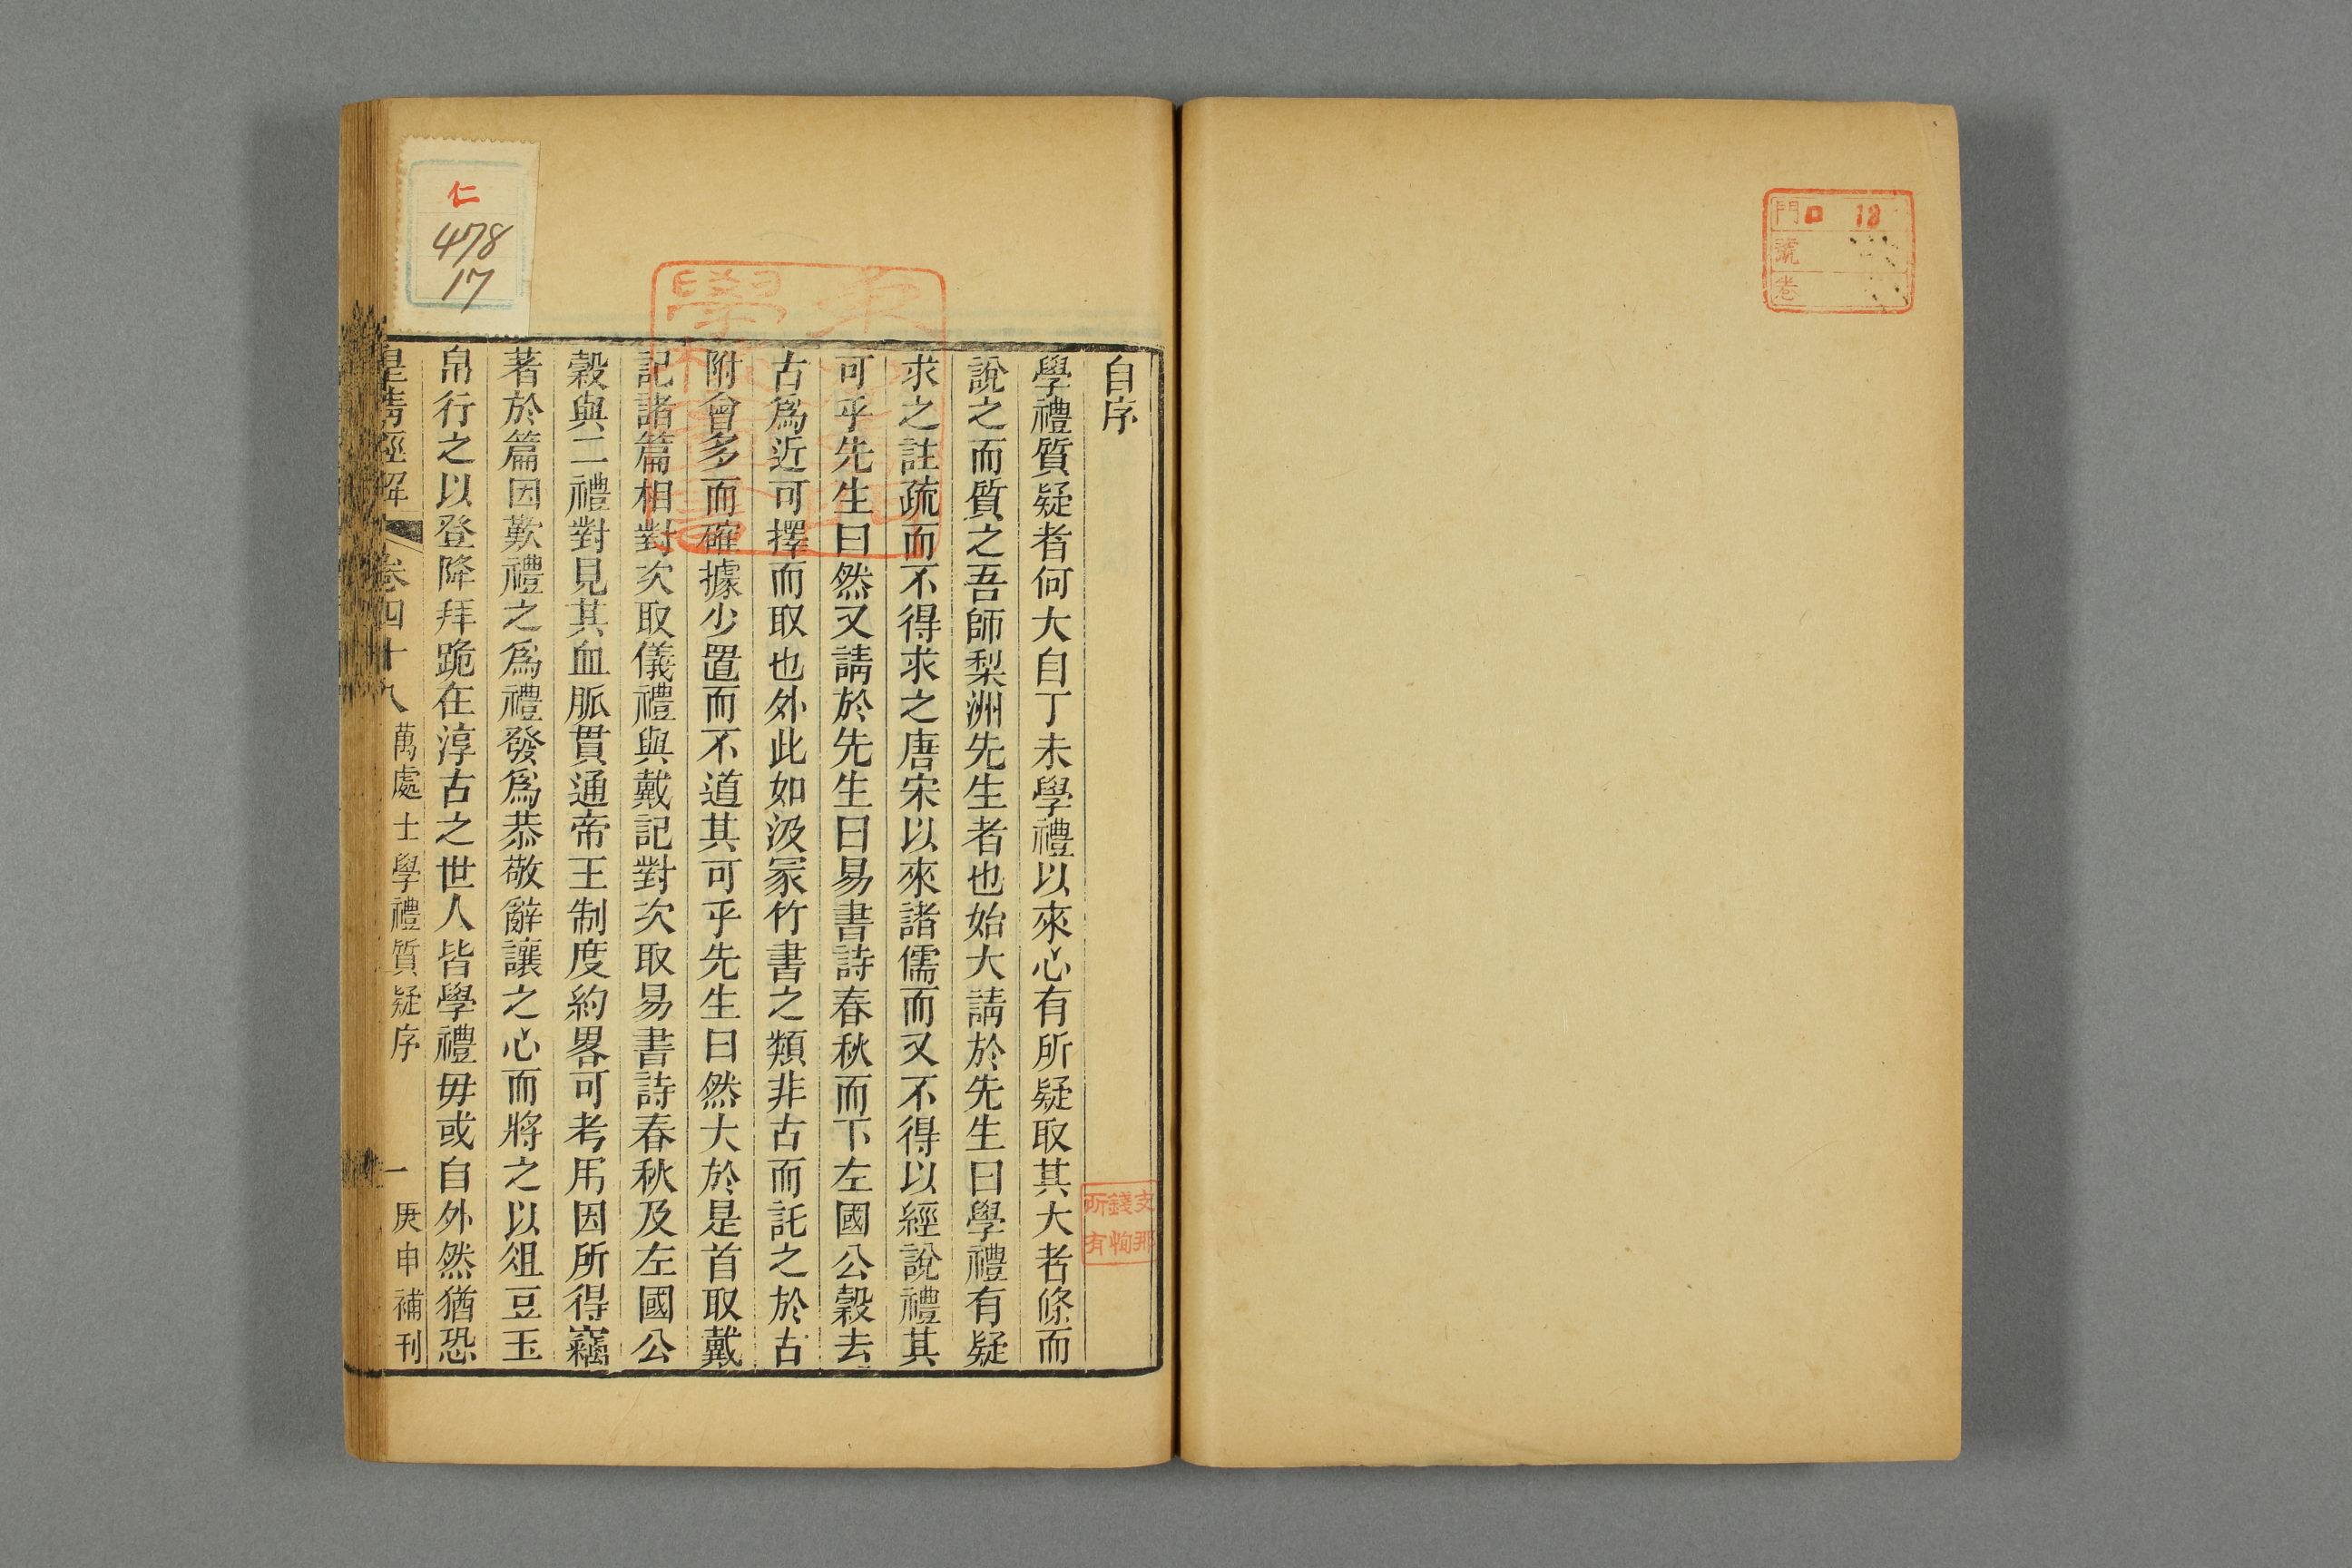 門 口 18
號
卷
自序
學禮質疑者何大自丁未學禮以來心有所疑取其大者條而
說之而質之吾師梨洲先生者也始大請於先生曰學禮有疑
求之註疏而不得求之唐宋以來諸儒而又不得以經說禮其
可乎先生曰然又請於先生曰易書詩春秋而下左國公穀去
古爲近可擇而取也外此如汲冡竹書之類非古而託之於古
附會多而確據少置而不道其可乎先生曰然大於是首取戴
記諸篇相對次取儀禮與戴記對次取易書詩春秋及左國公
穀與二禮對見其血脈貫通帝王制度約畧可考用因所得竊
著於篇因歎禮之爲禮發爲恭敬辭讓之心而將之以俎豆玉
帛行之以登降拜跪在淳古之世人皆學禮毋或自外然猶恐
皇清經解 卷四十八 萬處士學禮質疑序 一 庚申補刊
支那
錢恂
所有
仁
478
17